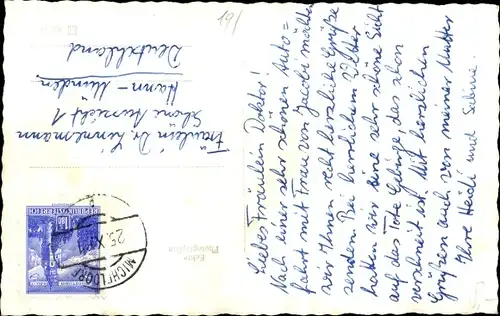 Liebes Fräulein Doktor!
Nach einer sehr schönen Auto=
fahrt mit Frau von Jacobi möchten
wir Ihnen recht herzliche Grüße
senden. Bei herrlichem Wetter
hatten wir eine sehr schöne Sicht
auf das Tote Gebirge, das schon
verschneit ist. Mit herzlichen
Grüßen auch von meiner Mutter
Ihre Heidi und Sabine.
Fräulein Dr. Linnemann
Schöne Aussicht 1
Hann - Münden
Deutschland
19/
Echte
Photographie
REPUBLIK ÖSTERREICH
25. X.
MICHELDORF
5,-